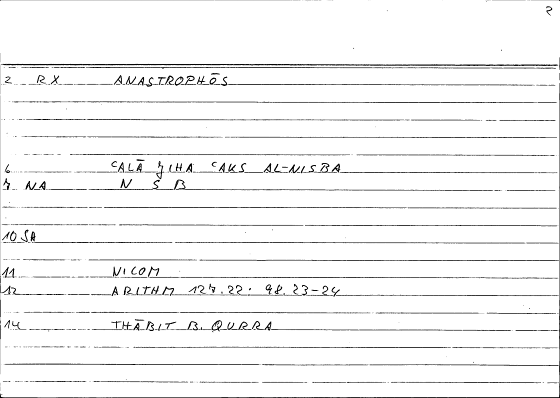 2
2 RX ANASTROPHŌS
6 ᶜALĀ ǦIHA ᶜAKS AL-NISBA
7 NA N S B
10 SA
11 NICOM
12 ARITHM 127.22: 98.23-24
14 THĀBIT B. QURRA